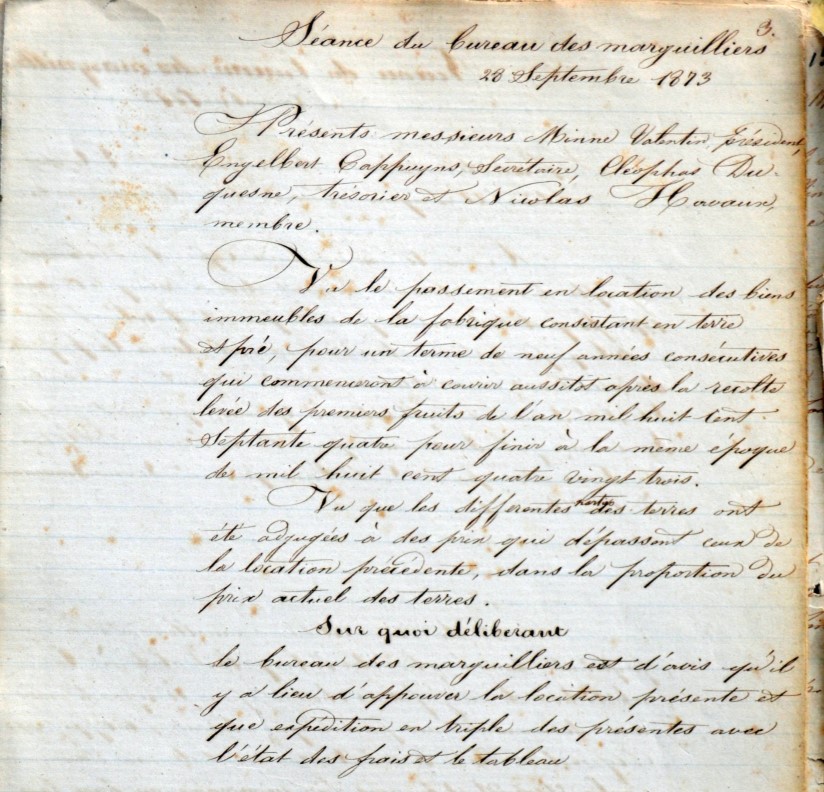 3.
Séance du bureau des marguilliers
28 Septembre 1873
Présents messieurs Minne Valentin, Président,
Engelbert Cappuyns, Secrétaire, Cléophas Du-
quesne, trésorier et Nicolas Hervaux,
membre.
Vu le passement en location des biens
immeubles de la fabrique consistant en terre
et pré, pour un terme de neuf années consécutives
qui commenceront à courir aussitôt après la récolte
levée des premiers fruits de l'an mil huit cent
septante quatre pour finir à la même époque
de mil huit cent quatre vingt trois.
Vu que les differentes des terres ont
été adjugées à des prix qui dépassent ceux de
la location précédente, dans la proportion du
prix actuel des terres.
Sur quoi déliberant
le bureau des marguilliers est d'avis qu'il
y a lieu d'appouver la location présente et
que expédition en triple des présentes avec
l'état des frais et le tableau